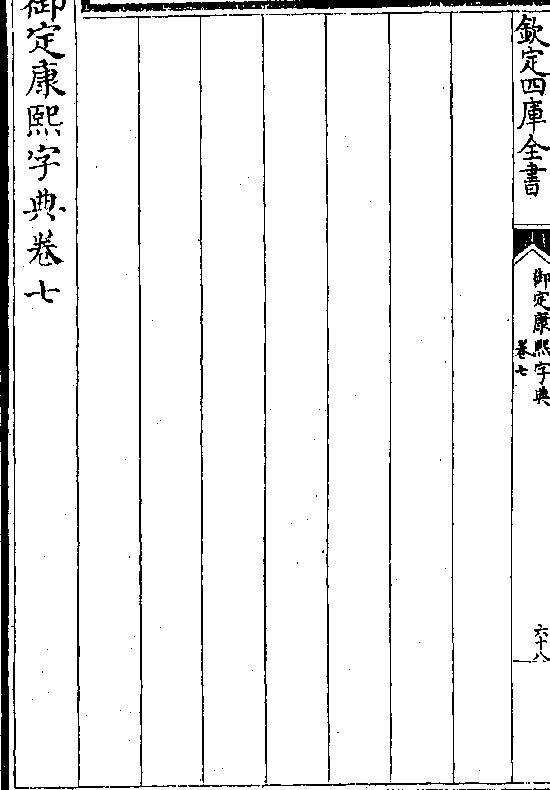 欽定四庫全書
御定康熙字典
卷七
六十八
御定康熙字典卷七